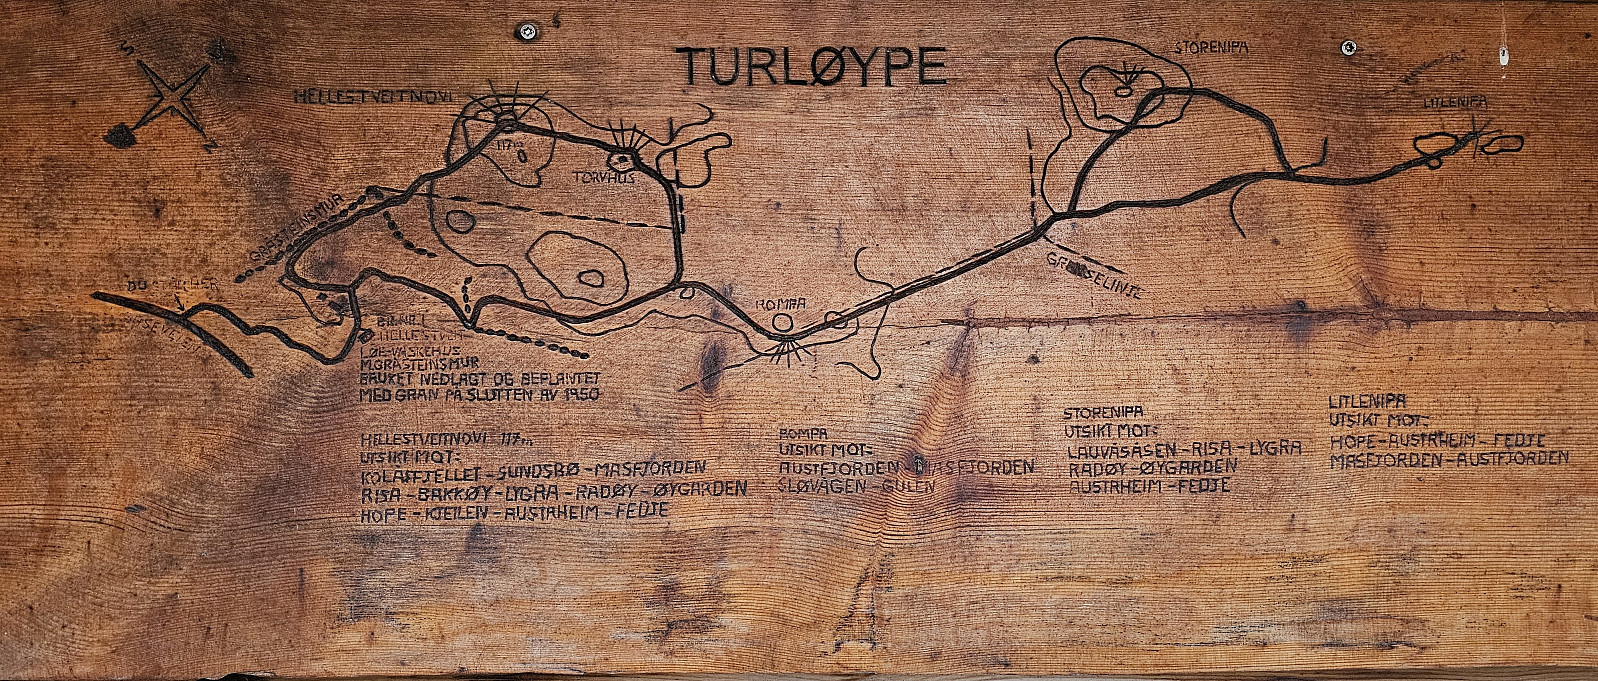 TURLØYPE
S
N
HELLESTVEITNOVI
117m
TORVHUS
STORENIPA
LITLENIPA
GRÅSTEINSMUR
ROMPA
GRENSELINJE
BR.NR.1
HELLESTVEIT
LØE-VASKEHUS
M.GRÅSTEINSMUR
BRUKET NEDLAGT OG BEPLANTET
MED GRAN PÅ SLUTTEN AV 1950
HELLESTVEITNOVI 117m
UTSIKT MOT:
KOLÅSFJELLET - SUNDSBØ - MASFJORDEN
RISA - BAKKØY - LYGRA - RADØY - ØYGARDEN
HOPE - KJEILEN - AUSTRHEIM - FEDJE
ROMPA
UTSIKT MOT:
AUSTFJORDEN - MASFJORDEN
SLØVÅGEN - GULEN
STORENIPA
UTSIKT MOT:
LAUVÅSÅSEN - RISA - LYGRA
RADØY - ØYGARDEN
AUSTRHEIM - FEDJE
LITLENIPA
UTSIKT MOT:
HOPE - AUSTRHEIM - FEDJE
MASFJORDEN - AUSTFJORDEN